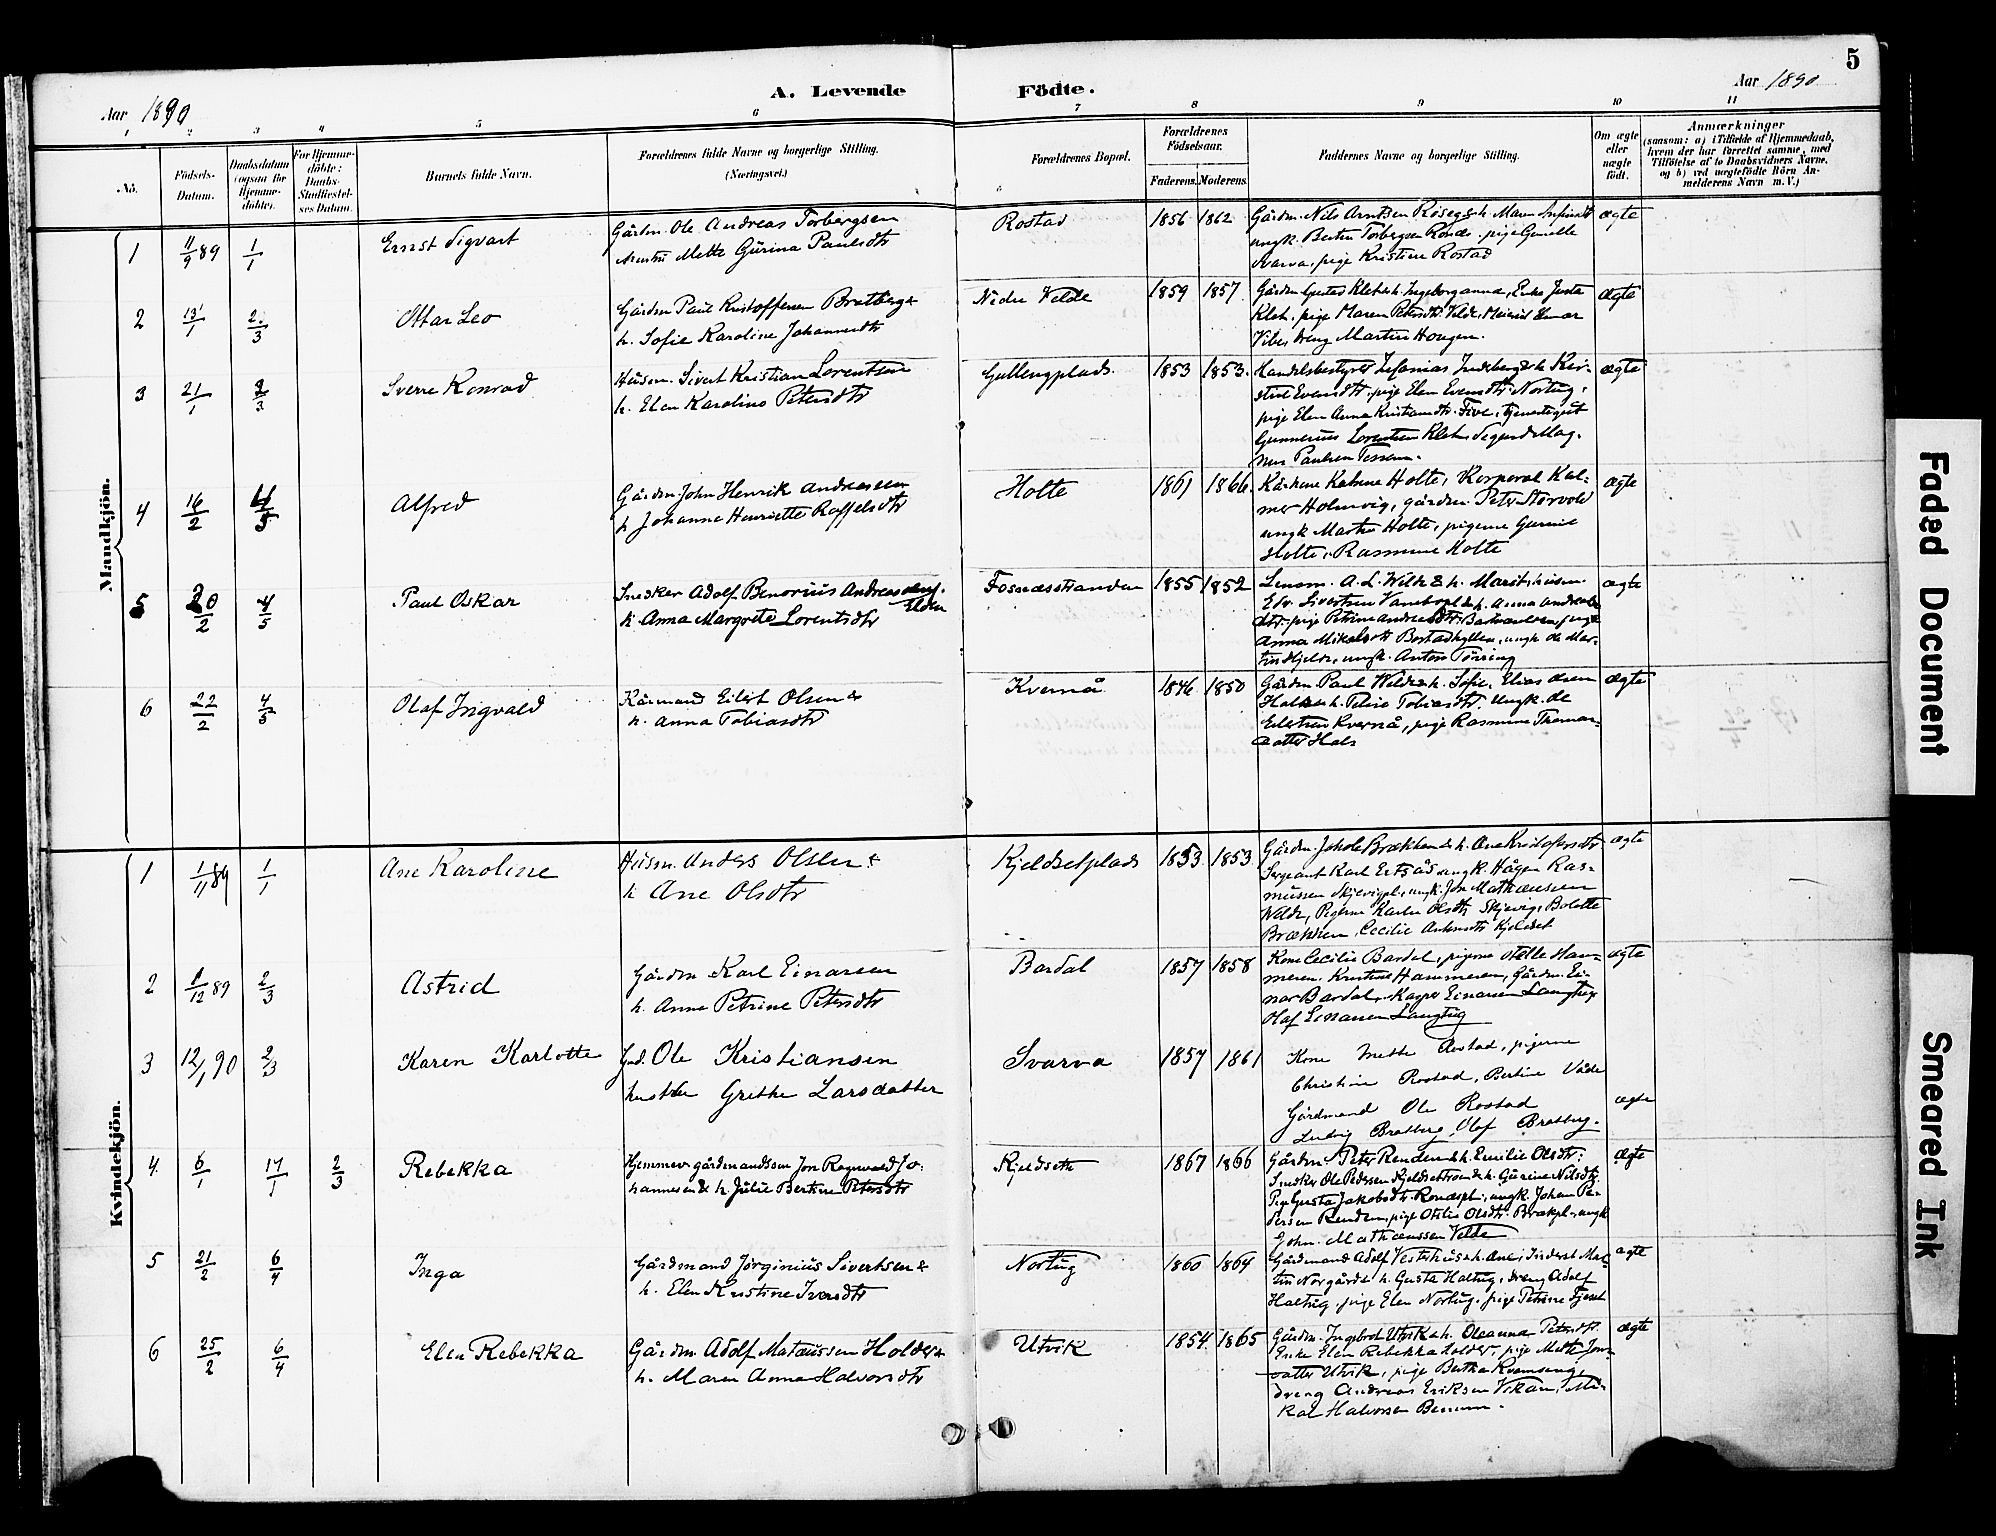 5
Aar 1890
A. Levende Födte.
Aar 1890
1 2 3 4 5 6 7 8 9 10 11
No.
Födsels-Datum.
Daabsdatum (ogsaa for Hjemmedöbte).
For Hjemmedöbte: Daabs-Stadfæstelses Datum.
Barnets fulde Navn.
Forældrenes fulde Navne og borgerlige Stilling.
(Næringsvei.)
Forældrenes Bopæl.
Forældrenes Födselsaar.
Faderens. Moderens.
Faddernes Navne og borgerlige Stilling.
Om ægte eller uægte födt.
Anmærkninger
(saasom: a) i Tilfælde af Hjemmedaab, hvem der har forrettet samme, med Tilföielse af to Daabsvidners Navne, og b) ved uægtefödte Börn Anmelderens Navn m. V.)
Mandkjön.
1 11/9 89 1/1 Ernst Sigvart
Gårdm. Ole Andreas Torbergsen
Mette Gurina Paulsdtr
Rostad 1856 1862
Gårdm. Nils Arntsen Röseg & h. Maren
ungk. Berten Torbergsen pige Gunille
Svarva, pige Kristine Rostad
ægte
2 13/1 2/3 Ottar Leo
Gårdm Paul Kristoffersen Bratberg &
h. Sofie Karoline Johannesdtr
Nedre Velde 1859 1857
Gårdm Gustav Klet & h. Ingeborganna, Enke
Klet, pige Maren Petersdtr Velde,
Vibe, dreng Martin Hougen.
ægte
3 21/1 2/3 Sverre Konrad
Husm. Sivert Kristian Lorentsen
h. Elen Karoline Petersdtr
Gullengplads 1853 1853.
Handelsbestyrer Zefanias Inderberg & h. Kir-
stine Evensdtr. pige Elen Evensdtr. Nortug,
pige Elen Anna Kristiansdtr. Five, tjenestegut
Gunnerius Lorentsen Klet, Sigurd Mag-
nus Paulsen Tessem.
ægte
4 16/2 4/5 Alfred
Gårdm John Henrik Andreassen
h Johanna Henriette Roffelsdtr
Holte 1861 1866.
Kårkone Katrine Holte, Korporal Kal-
mer Holmvig, gårdm. Peter Storvold
ungk Martin Holte, pigerne Gurine
Holte, Rasmine Holte
ægte
5 20/2 4/5 Paul Oskar
Snedker Adolf Benorius Andreassen
Elden
h. Anna Margrete Lorentsdtr
Fosnæsstranden 1855 1852
Lensm. A. L. Welh & h. Marit, husm.
Edv. Sivertsen & h. Anna Andreas
dtr. pige Petrine Andreasdtr. pige
Anna Mikalsdtr Bostadhyllen, ungk. Ole Mar-
tin Hjelde, ungk. Anton Törring
ægte
6 22/2 4/5 Olaf Ingvald
Kårmand Eilert Olsen &
h. Anna Tobiasdtr
Kvernå 1846 1850
Gårdm. Paul Velde & h. Sofie, Elias Olsen
Halten & h. Petrine Tobiasdtr. Ungk. Ole
Eilertsen Kvernå, pige Rasmine Thomas-
datter Hals
ægte
Kvindekjön.
1 1/11 89 1/1 Ane Karoline
Husm. Anders Olsen &
h Ane Olsdtr
Kjeldsetplads 1853 1853.
Gårdm. Jakob Brækken & h. Ane Kristofersdtr
Sergeant Karl ungk. Hågen Ras-
mussen Skjevigpl., ungk. Jon Mathæussen
Velde, Pigerne Karen Olsdtr. Skjevig, Bolette
Brækken, Cecilie Antonsdtr Kjeldset
ægte
2 1/12 89 2/3 Astrid
Gårdm Karl Einarsen
h. Anne Petrine Petersdtr
Bardal 1857 1858
Kone Cecilie Bardal, pigerne Otelie Ham-
meren. Kristine Hammeren, Gårdm. Ei-
nar Bardal, Kasper Einarsen Langtug
Olaf Einarsen Langtug
ægte
3 12/1 90 2/3 Karen Karlotte
Grd. Ole Kristiansen
hustru Grethe Larsdatter
Svarva 1857 1861
Kone Mette Rostad, pigerne
Christine Rostad, Bertine Velde
Gårdmand Ole Rostad
Ludvig Bratberg, Olaf Bratberg.
ægte
4 6/1 17/1 2/3 Rebekka
Hjemmev. gårdmandssøn Jon Ragnvald Jo-
hannesen & h. Julie Bertine Petersdtr
Kjeldseth 1867 1866
Gårdm. Peter Renden & h. Emilie Olsdtr.
Snedker Ole Pedersen Kjeldsetmoen & h. Gurine Nilsdtr.
Pige Gusta Jakobsdtr. Ronæspl., ungk. Johan Pe-
tersen Renden, pige Otelie Olsdtr. Brækpl., ungk
John. Mathæussen Velde
ægte
5 21/2 6/4 Inga
Gårdmand Jörginius Sivertsen &
h. Elen Kristine Iversdtr
Nortug 1860 1864
Gårdmand Adolf Vesterhus & h. Ane, Inderst Mar-
tin Norgård & h. Gusta Haltug, dreng Adolf
Haltug, pige Elen Nortug, pige Petrine Tjeset
ægte
6 25/2 6/4 Elen Rebekka
Gårdm Adolf Matæussen Holder &
h. Maren Anna Halvorsdtr
Utvik 1854. 1865
Gårdm. Ingebrot Utvik & h. Oleanna Petersdtr.
Enke Elen Rebekka Holder, pige Mette Jons-
datter Utvik, pige Berthe Kvamseng,
dreng Andreas Eriksen Vikan, Mi-
kal Halvorsen Benum.
ægte
Faded Document
Smeared Ink